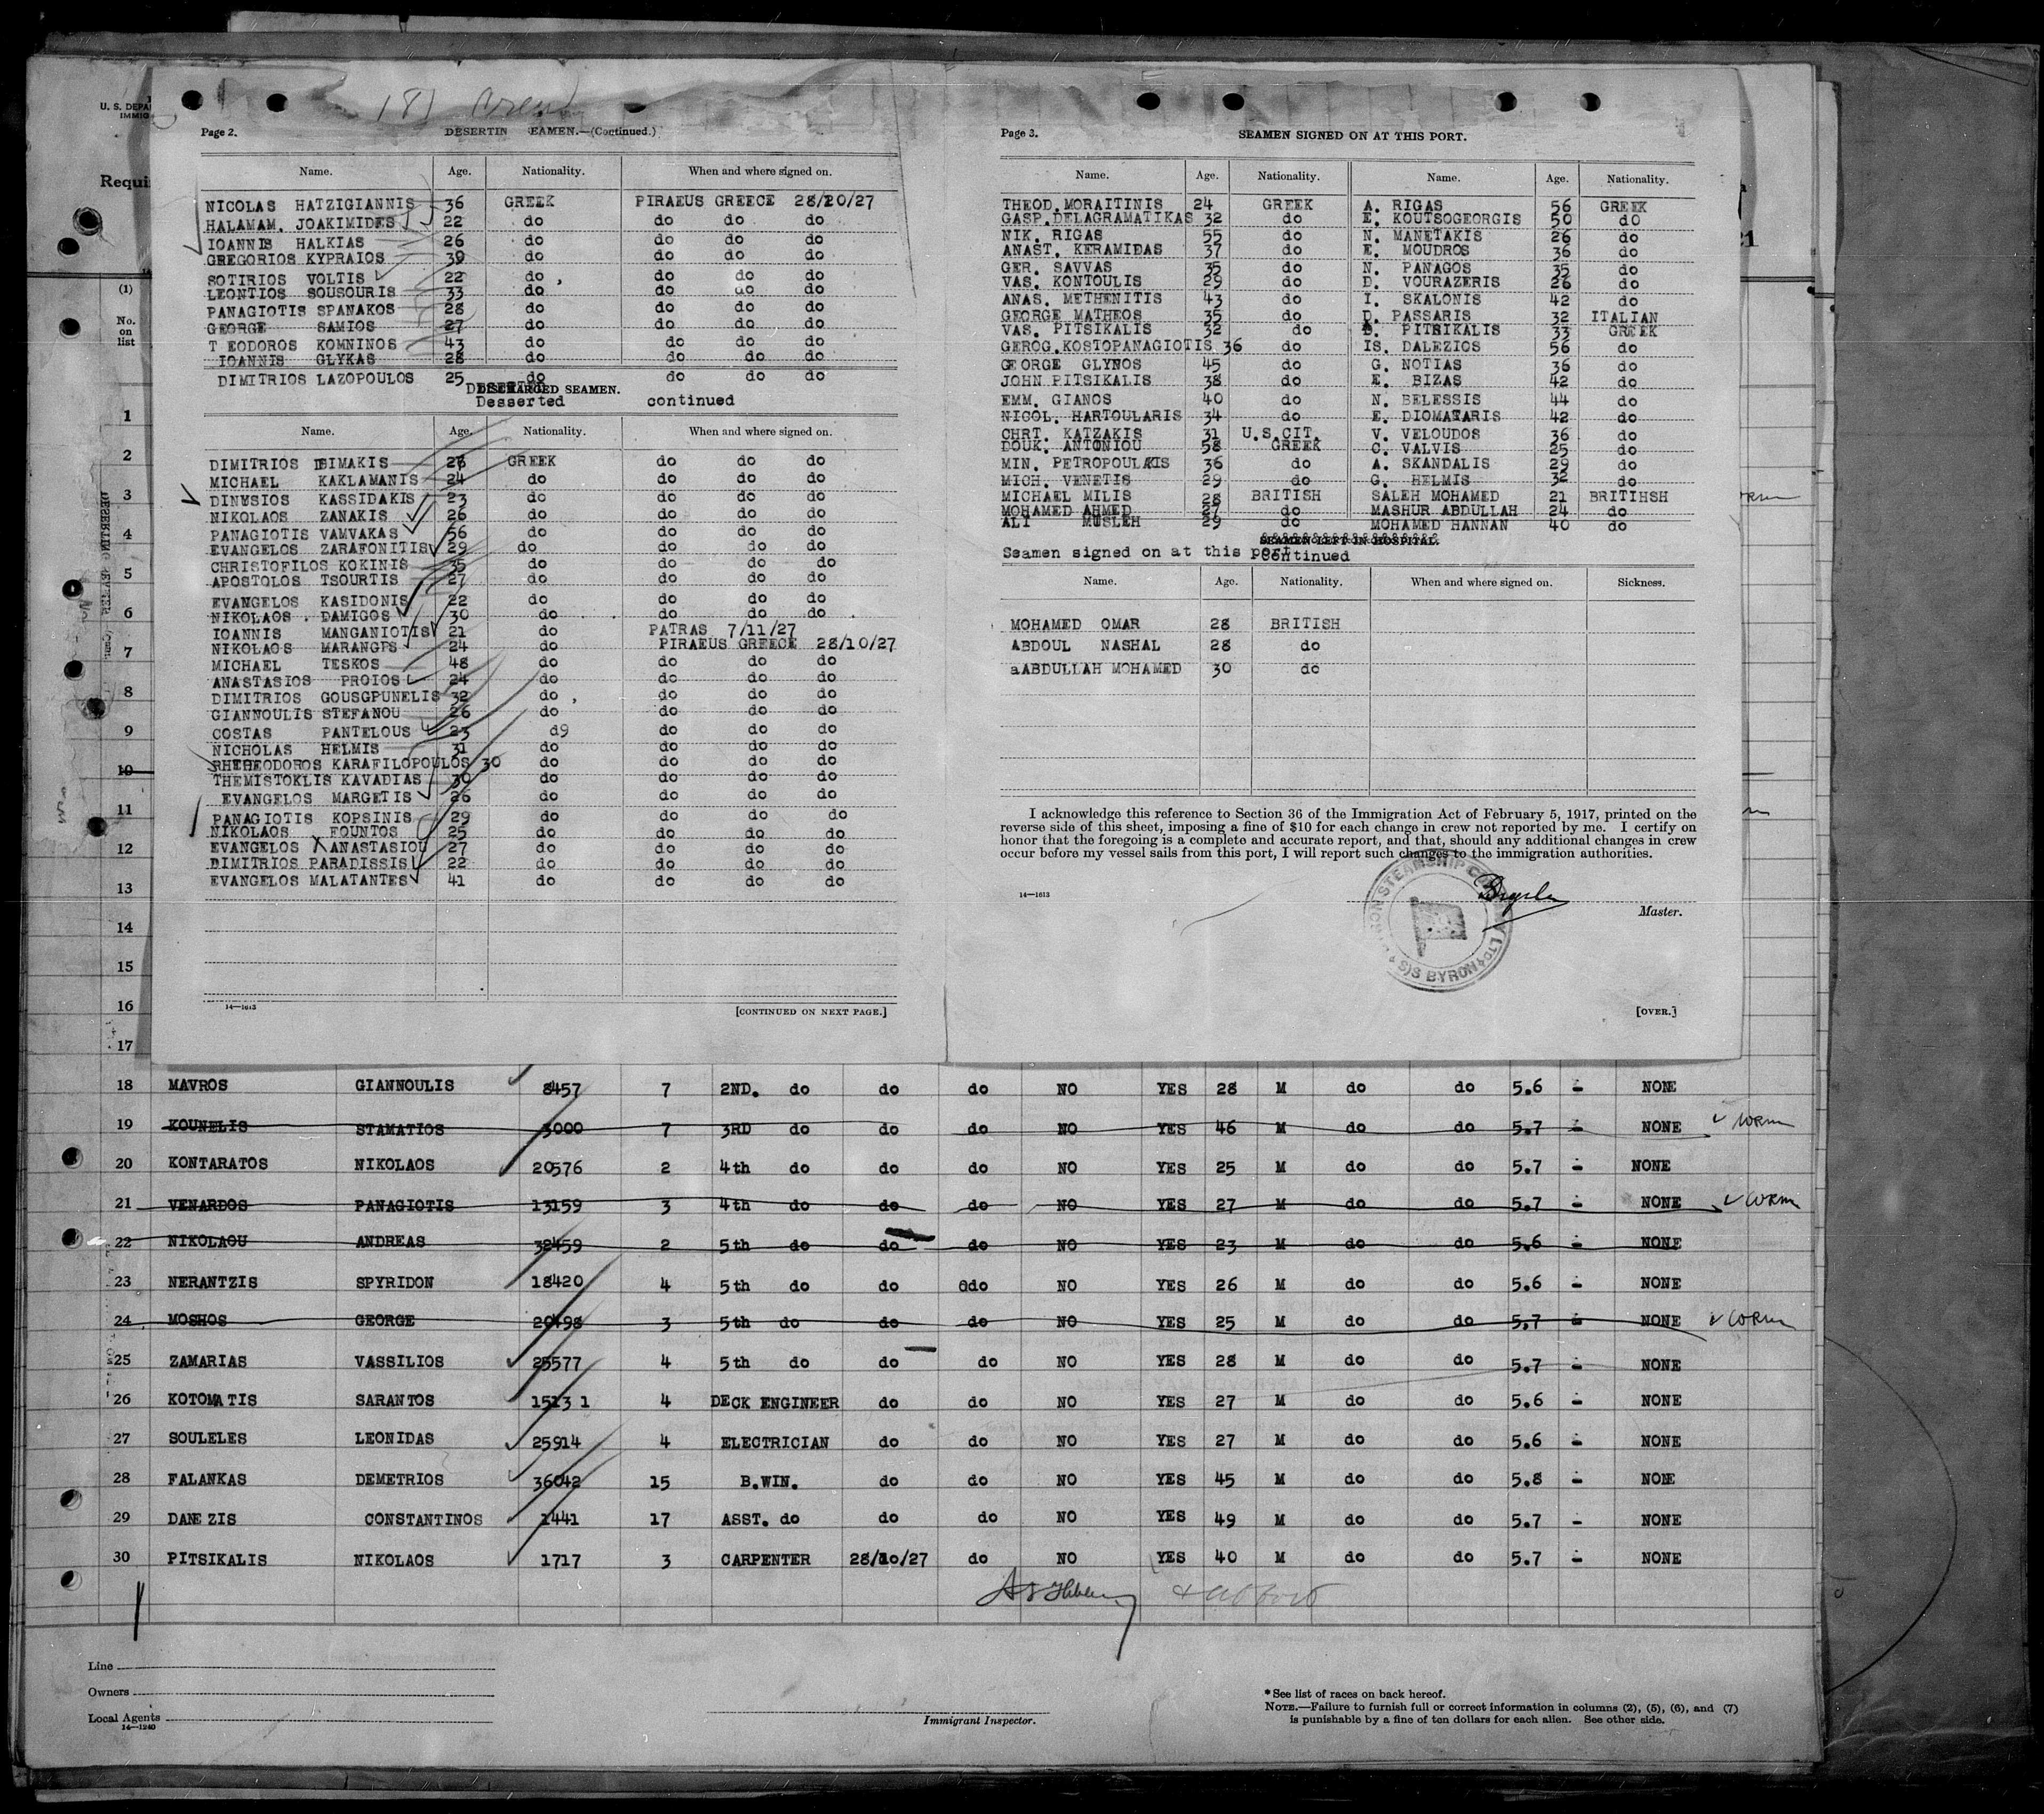 181 Crew
U. S. DEPA
IMMIG
Requi
Page 2.
DESERTIN EAMEN.—(Continued.)
Name. Age. Nationality. When and where signed on.
NICOLAS HATZIGIANNIS 36 GREEK PIRAEUS GREECE 28/10/27
HALAMAM. JOAKIMIDES 22 do do do do
IOANNIS HALKIAS 26 do do do do
GREGORIOS KYPRAIOS 39 do do do do
SOTIRIOS VOLTIS 22 do do do do
LEONTIOS SOUSOURIS 33 do do do do
PANAGIOTIS SPANAKOS 28 do do do do
GEORGE SAMIOS 27 do do do do
T EODOROS KOMNINOS 43 do do do do
IOANNIS GLYKAS 28 do do do do
DIMITRIOS LAZOPOULOS 25 do do do do
DISCHARGED SEAMEN.
Desserted continued
Name. Age. Nationality. When and where signed on.
DIMITRIOS BIMAKIS 28 GREEK do do do
MICHAEL KAKLAMANIS 24 do do do do
DINYSIOS KASSIDAKIS 23 do do do do
NIKOLAOS ZANAKIS 26 do do do do
PANAGIOTIS VAMVAKAS 56 do do do do
EVANGELOS ZARAFONITIS 29 do do do do
CHRISTOFILOS KOKINIS 35 do do do do
APOSTOLOS TSOURTIS 27 do do do do
EVANGELOS KASIDONIS 22 do do do do
NIKOLAOS . DAMIGOS 30 do do do do
IOANNIS MANGANIOTIS 21 do PATRAS 7/11/27
NIKOLAOS MARANGPS 24 do PIRAEUS GREECE 28/10/27
MICHAEL TESKOS 48 do do do do
ANASTASIOS PROIOS 24 do do do do
DIMITRIOS GOUSGPUNELIS 32 do do do do
GIANNOULIS STEFANOU 26 do do do do
COSTAS PANTELOUS 23 d9 do do do
NICHOLAS HELMIS 31 do do do do
RHTHEODOROS KARAFILOPOULOS 30 do do do do
THEMISTOKLIS KAVADIAS 30 do do do do
EVANGELOS MARGETIS 26 do do do do
PANAGIOTIS KOPSINIS 29 do do do do
NIKOLAOS FOUNTOS 25 do do do do
EVANGELOS X ANASTASIOU 27 do do do do
DIMITRIOS PARADISSIS 22 do do do do
EVANGELOS MALATANTES 41 do do do do
14—1613
[CONTINUED ON NEXT PAGE.]
Page 3.
SEAMEN SIGNED ON AT THIS PORT.
Name. Age. Nationality. Name. Age. Nationality.
THEOD. MORAITINIS 24 GREEK A. RIGAS 56 GREEK
GASP. DELAGRAMATIKAS 32 do E. KOUTSOGEORGIS 50 do
NIK. RIGAS 55 do N. MANETAKIS 26 do
ANAST. KERAMIDAS 37 do E. MOUDROS 36 do
GER. SAVVAS 35 do N. PANAGOS 35 do
VAS. KONTOULIS 29 do D. VOURAZERIS 26 do
ANAS. METHENITIS 43 do I. SKALONIS 42 do
GEORGE MATHEOS 35 do D. PASSARIS 32 ITALIAN
VAS. PITSIKALIS 32 do PITSIKALIS 33 GREEK
GEROG. KOSTOPANAGIOTIS 36 do IS. DALEZIOS 56 do
GEORGE GLYNOS 45 do G. NOTIAS 36 do
JOHN PITSIKALIS 38 do E. BIZAS 42 do
EMM. GIANOS 40 do N. BELESSIS 44 do
NICOL. HARTOULARIS 34 do E. DIOMATARIS 42 do
CHRT. KATZAKIS 31 U.S.CIT. V. VELOUDOS 36 do
DOUK. ANTONIOU 58 GREEK C. VALVIS 25 do
MIN. PETROPOULAKIS 36 do A. SKANDALIS 29 do
MICH. VENETIS 29 do G. HELMIS 32 do
MICHAEL MILIS 28 BRITISH SALEH MOHAMED 21 BRITIHSH
MOHAMED AHMED 27 do MASHUR ABDULLAH 24 do
ALI MUSLEH 29 do MOHAMED HANNAN 40 do
SEAMEN LEFT IN HOSPITAL.
Seamen signed on at this port Continued
Name. Age. Nationality. When and where signed on. Sickness.
MOHAMED OMAR 28 BRITISH
ABDOUL NASHAL 28 do
aABDULLAH MOHAMED 30 do
I acknowledge this reference to Section 36 of the Immigration Act of February 5, 1917, printed on the
reverse side of this sheet, imposing a fine of $10 for each change in crew not reported by me. I certify on
honor that the foregoing is a complete and accurate report, and that, should any additional changes in crew
occur before my vessel sails from this port, I will report such changes to the immigration authorities.
14—1613
Master.
STEAMSHIP COMPANY LTD
S/S BYRON
[OVER.]
(1)
No.
on
list
1
2
3
4
5
6
7
8
9
10
11
12
13
14
15
16
17
18 MAVROS GIANNOULIS 8457 7 2ND. do do do NO YES 28 M do do 5.6 - NONE
19 KOUNELIS STAMATIOS 3000 7 3RD do do do NO YES 46 M do do 5.7 - NONE
20 KONTARATOS NIKOLAOS 20576 2 4th do do do NO YES 25 M do do 5.7 - NONE
21 VENARDOS PANAGIOTIS 13159 3 4th do do do NO YES 27 M do do 5.7 - NONE
22 NIKOLAOU ANDREAS 32459 2 5th do do do NO YES 23 M do do 5.6 - NONE
23 NERANTZIS SPYRIDON 18420 4 5th do do do NO YES 26 M do do 5.6 - NONE
24 MOSHOS GEORGE 20498 3 5th do do do NO YES 25 M do do 5.7 - NONE
25 ZAMARIAS VASSILIOS 25577 4 5th do do do NO YES 28 M do do 5.7 - NONE
26 KOTOMATIS SARANTOS 1513 1 4 DECK ENGINEER do do NO YES 27 M do do 5.6 - NONE
27 SOULELES LEONIDAS 25914 4 ELECTRICIAN do do NO YES 27 M do do 5.6 - NONE
28 FALANKAS DEMETRIOS 36042 15 B.WIN. do do NO YES 45 M do do 5.8 - NONE
29 DANEZIS CONSTANTINOS 1441 17 ASST. do do do NO YES 49 M do do 5.7 - NONE
30 PITSIKALIS NIKOLAOS 1717 3 CARPENTER 28/10/27 do NO YES 40 M do do 5.7 - NONE
Line
Owners
Local Agents
14—1240
Immigrant Inspector.
*See list of races on back hereof.
NOTE.—Failure to furnish full or correct information in columns (2), (5), (6), and (7)
is punishable by a fine of ten dollars for each alien. See other side.